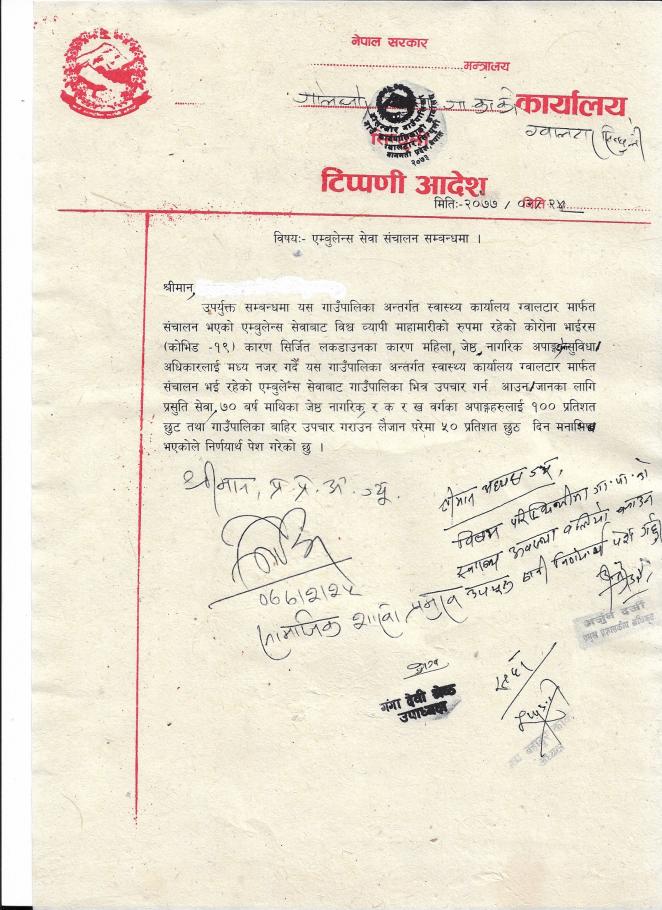 नेपाल सरकार
..............................मन्त्रालय
कार्यालय
ग्वालटार सिन्धुली
टिप्पणी आदेश
मितिः-२०७७ / ०२/ २५
विषयः- एम्बुलेन्स सेवा संचालन सम्बन्धमा ।
श्रीमान्,
उपर्युक्त सम्बन्धमा यस गाउँपालिका अन्तर्गत स्वास्थ्य कार्यालय ग्वालटार मार्फत
संचालन भएको एम्बुलेन्स सेवाबाट विश्व व्यापी माहामारीको रुपमा रहेको कोरोना भाईरस
(कोभिड -१९) कारण सिर्जित लकडाउनका कारण महिला, जेष्ठ नागरिक अपाङ्ग सुविधा/
अधिकारलाई मध्य नजर गर्दै यस गाउँपालिका अन्तर्गत स्वास्थ्य कार्यालय ग्वालटार मार्फत
संचालन भई रहेको एम्बुलेन्स सेवाबाट गाउँपालिका भित्र उपचार गर्न आउन/जानका लागि
प्रसुति सेवा, ७० बर्ष माथिका जेष्ठ नागरिक र क र ख वर्गका अपाङ्गहरुलाई १०० प्रतिशत
छुट तथा गाउँपालिका बाहिर उपचार गराउन लैजान परेमा ५० प्रतिशत छुठ दिन मनासिब
भएकोले निर्णयार्थ पेश गरेको छु ।
श्रीमान, प्र.प्र.अ. ज्यू.
श्रीमान अध्यक्ष ज्यू,
विषम परिस्थितीमा गा.पा.को
स्वास्थ्य अवस्था
निर्णयार्थ पेश गर्दछु
०७७।२।२५
सामाजिक शाखा प्रमुख
अर्जुन दर्जी
प्रमुख प्रशासकीय अधिकृत
गंगा देवी श्रेष्ठ
उपाध्यक्ष
सदर